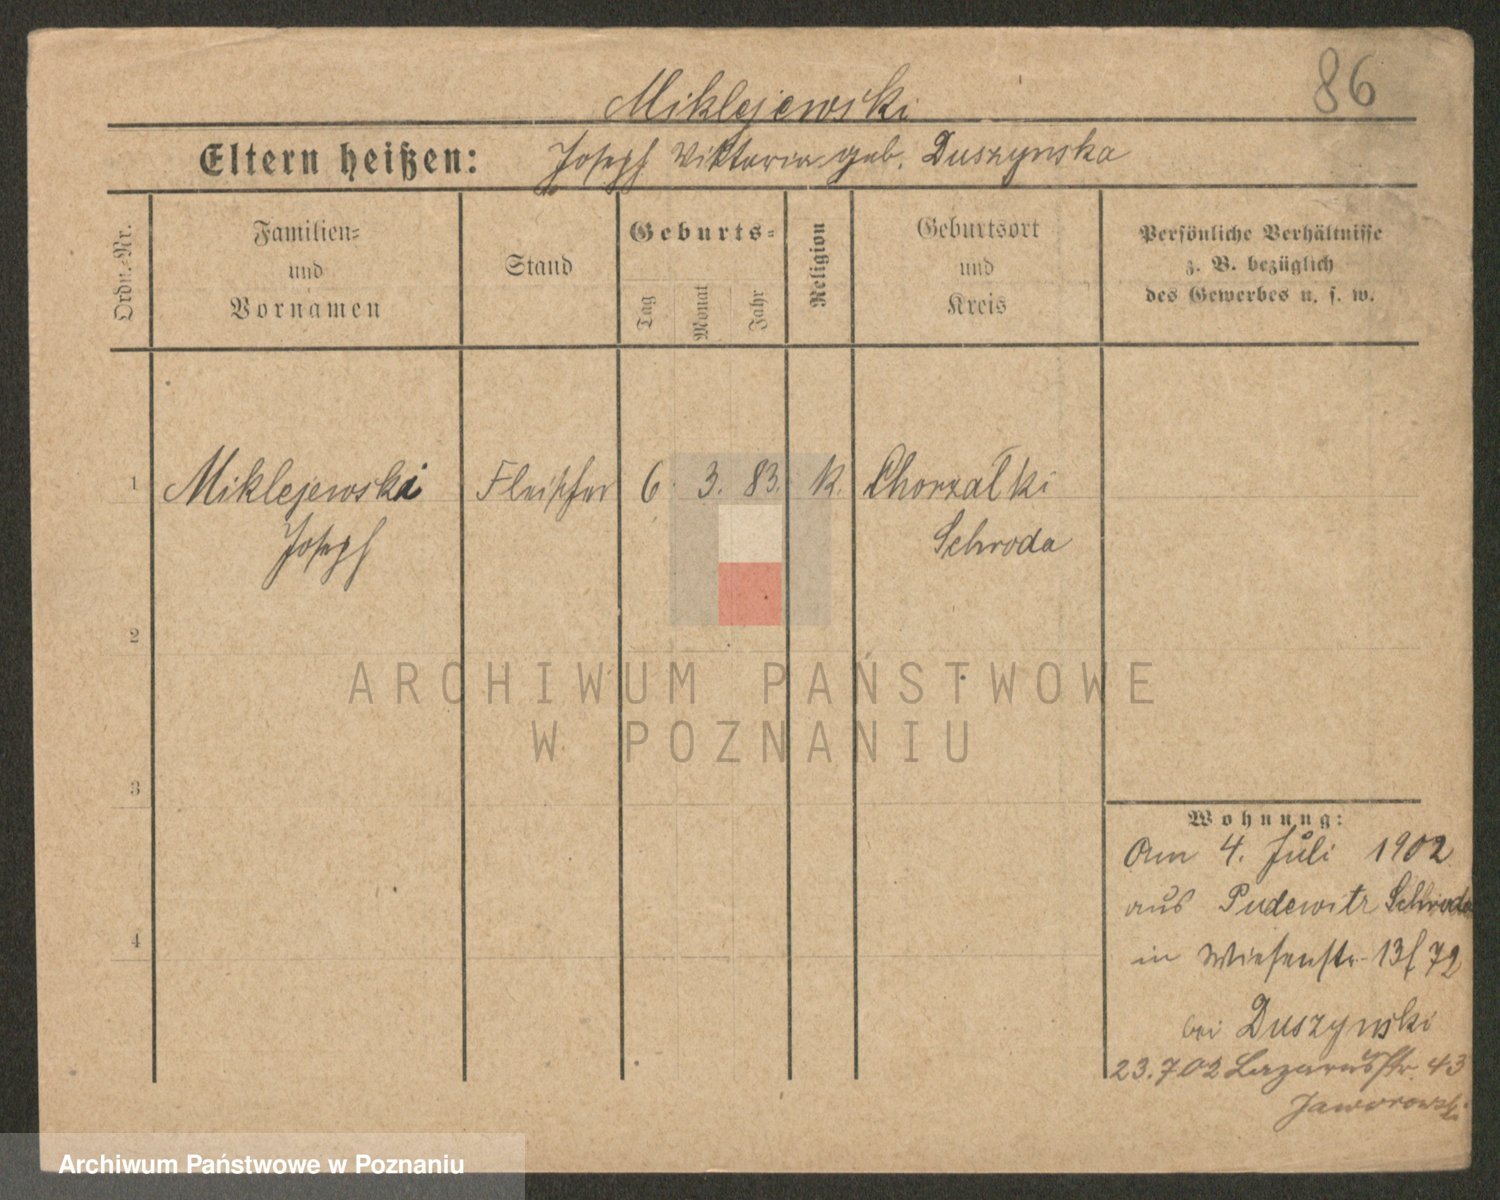 86
Miklejewski
Eltern heißen: Joseph Viktoria geb. Duszynska
Ordn.-Nr.
Familien-
und
Vornamen
Stand
Geburts-
Tag
Monat
Jahr
Religion
Geburtsort
und
Kreis
Persönliche Verhältnisse
z. B. bezüglich
des Gewerbes u. s. w.
1 Miklejewski Fleischer 6. 3. 83. k. Chorzalki
Joseph Schroda
2
3
4
Wohnung:
Am 4. Juli 1902
aus Pudewitz Schroda
in Wiesenstr. 13
bei Duszynski
23.7.02 Lazarusstr. 43
Jaworowski
ARCHIWUM PAŃSTWOWE
W POZNANIU
Archiwum Państwowe w Poznaniu